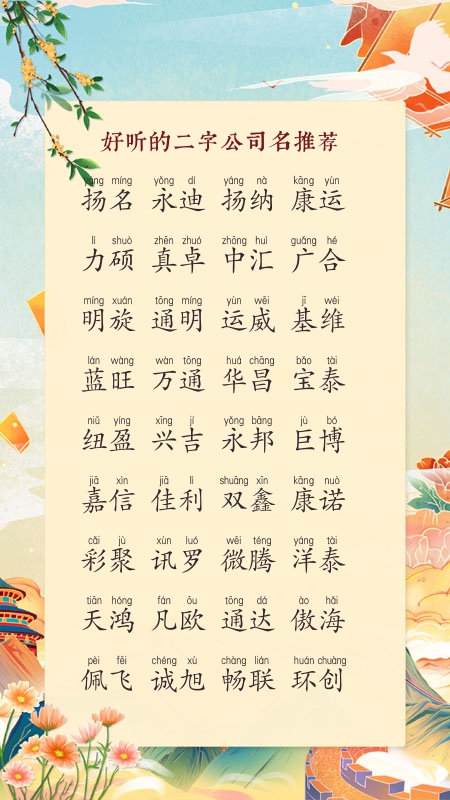 好听的二字公司名推荐
yáng míng yǒng dí yáng nà kāng yùn
扬名 永迪 扬纳 康运
lì shuò zhēn zhuó zhōng huì guǎng hé
力硕 真卓 中汇 广合
míng xuán tōng míng yùn wēi jī wéi
明旋 通明 运威 基维
lán wàng wàn tōng huá chāng bǎo tài
蓝旺 万通 华昌 宝泰
niǔ yíng xīng jí yǒng bāng jù bó
纽盈 兴吉 永邦 巨博
jiā xìn jiā lì shuāng xīn kāng nuò
嘉信 佳利 双鑫 康诺
cǎi jù xùn luó wēi téng yáng tài
彩聚 讯罗 微腾 洋泰
tiān hóng fán ōu tōng dá ào hǎi
天鸿 凡欧 通达 傲海
pèi fēi chéng xù chàng lián huán chuàng
佩飞 诚旭 畅联 环创